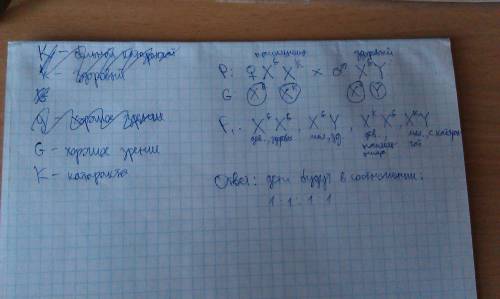 K – больной катарактой
K – здоровый
G – хорошее зрение
K – катаракта
здоровый
P: ♀ X^G X^K × ♂ X^G Y
G X^G X^K X^G Y
F₁: X^G X^G, X^G Y, X^K X^G, X^K Y
дев. здоров. мал. зд. дев. мал. с катарак
той
Ответ: дети будут в соотношении:
1 : 1 : 1 : 1